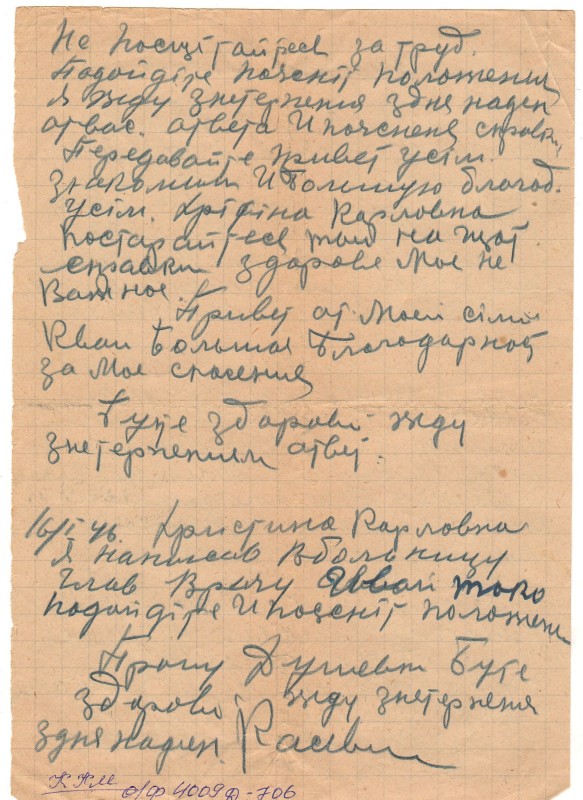 Не посщітайтесь за труд.
Подойдіте поясніт положения
Я жду знетерпения здня надень
отвас. ответа И пояснене справки,
Передавайте привет усім.
знакомим И Большую благод.
усім. Крістіна Карловна
постарайтесь там на щот
справки здаровє Мое не
Важное.
Привет от Моей сімі
Вам Большая Благодарност
за Мое спасения
Буте здарові жду
знетерпением ответ.
16/I 46. Кристина Карловна
Я написав Вбольницу
глав Врачу
подойдіте И поясніт положение
Прошу Душевно Буте
здарові жду знетерпения
здня надень.
ККМ
о/ф 4009 Д-706